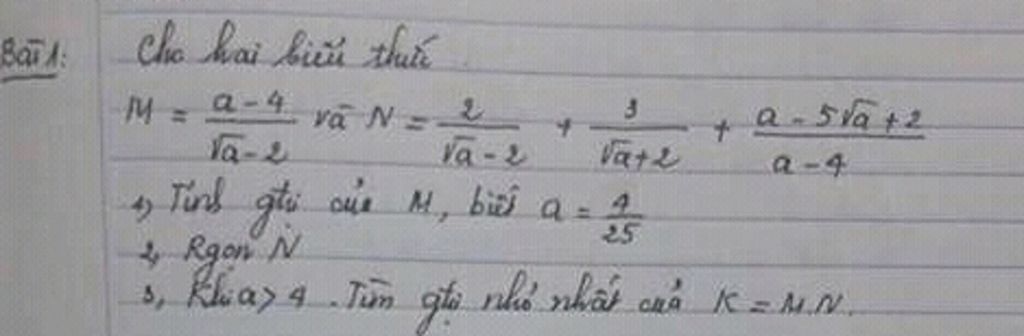 Bài 1: Cho hai biểu thức
M = (a - 4)/(√a - 2) và N = 2/(√a - 2) + 3/(√a + 2) + (a - 5√a + 2)/(a - 4)
1, Tính gtrị của M, biết a = 4/25
2, Rgọn N
3, Khi a > 4. Tìm gtrị nhỏ nhất của K = M.N.